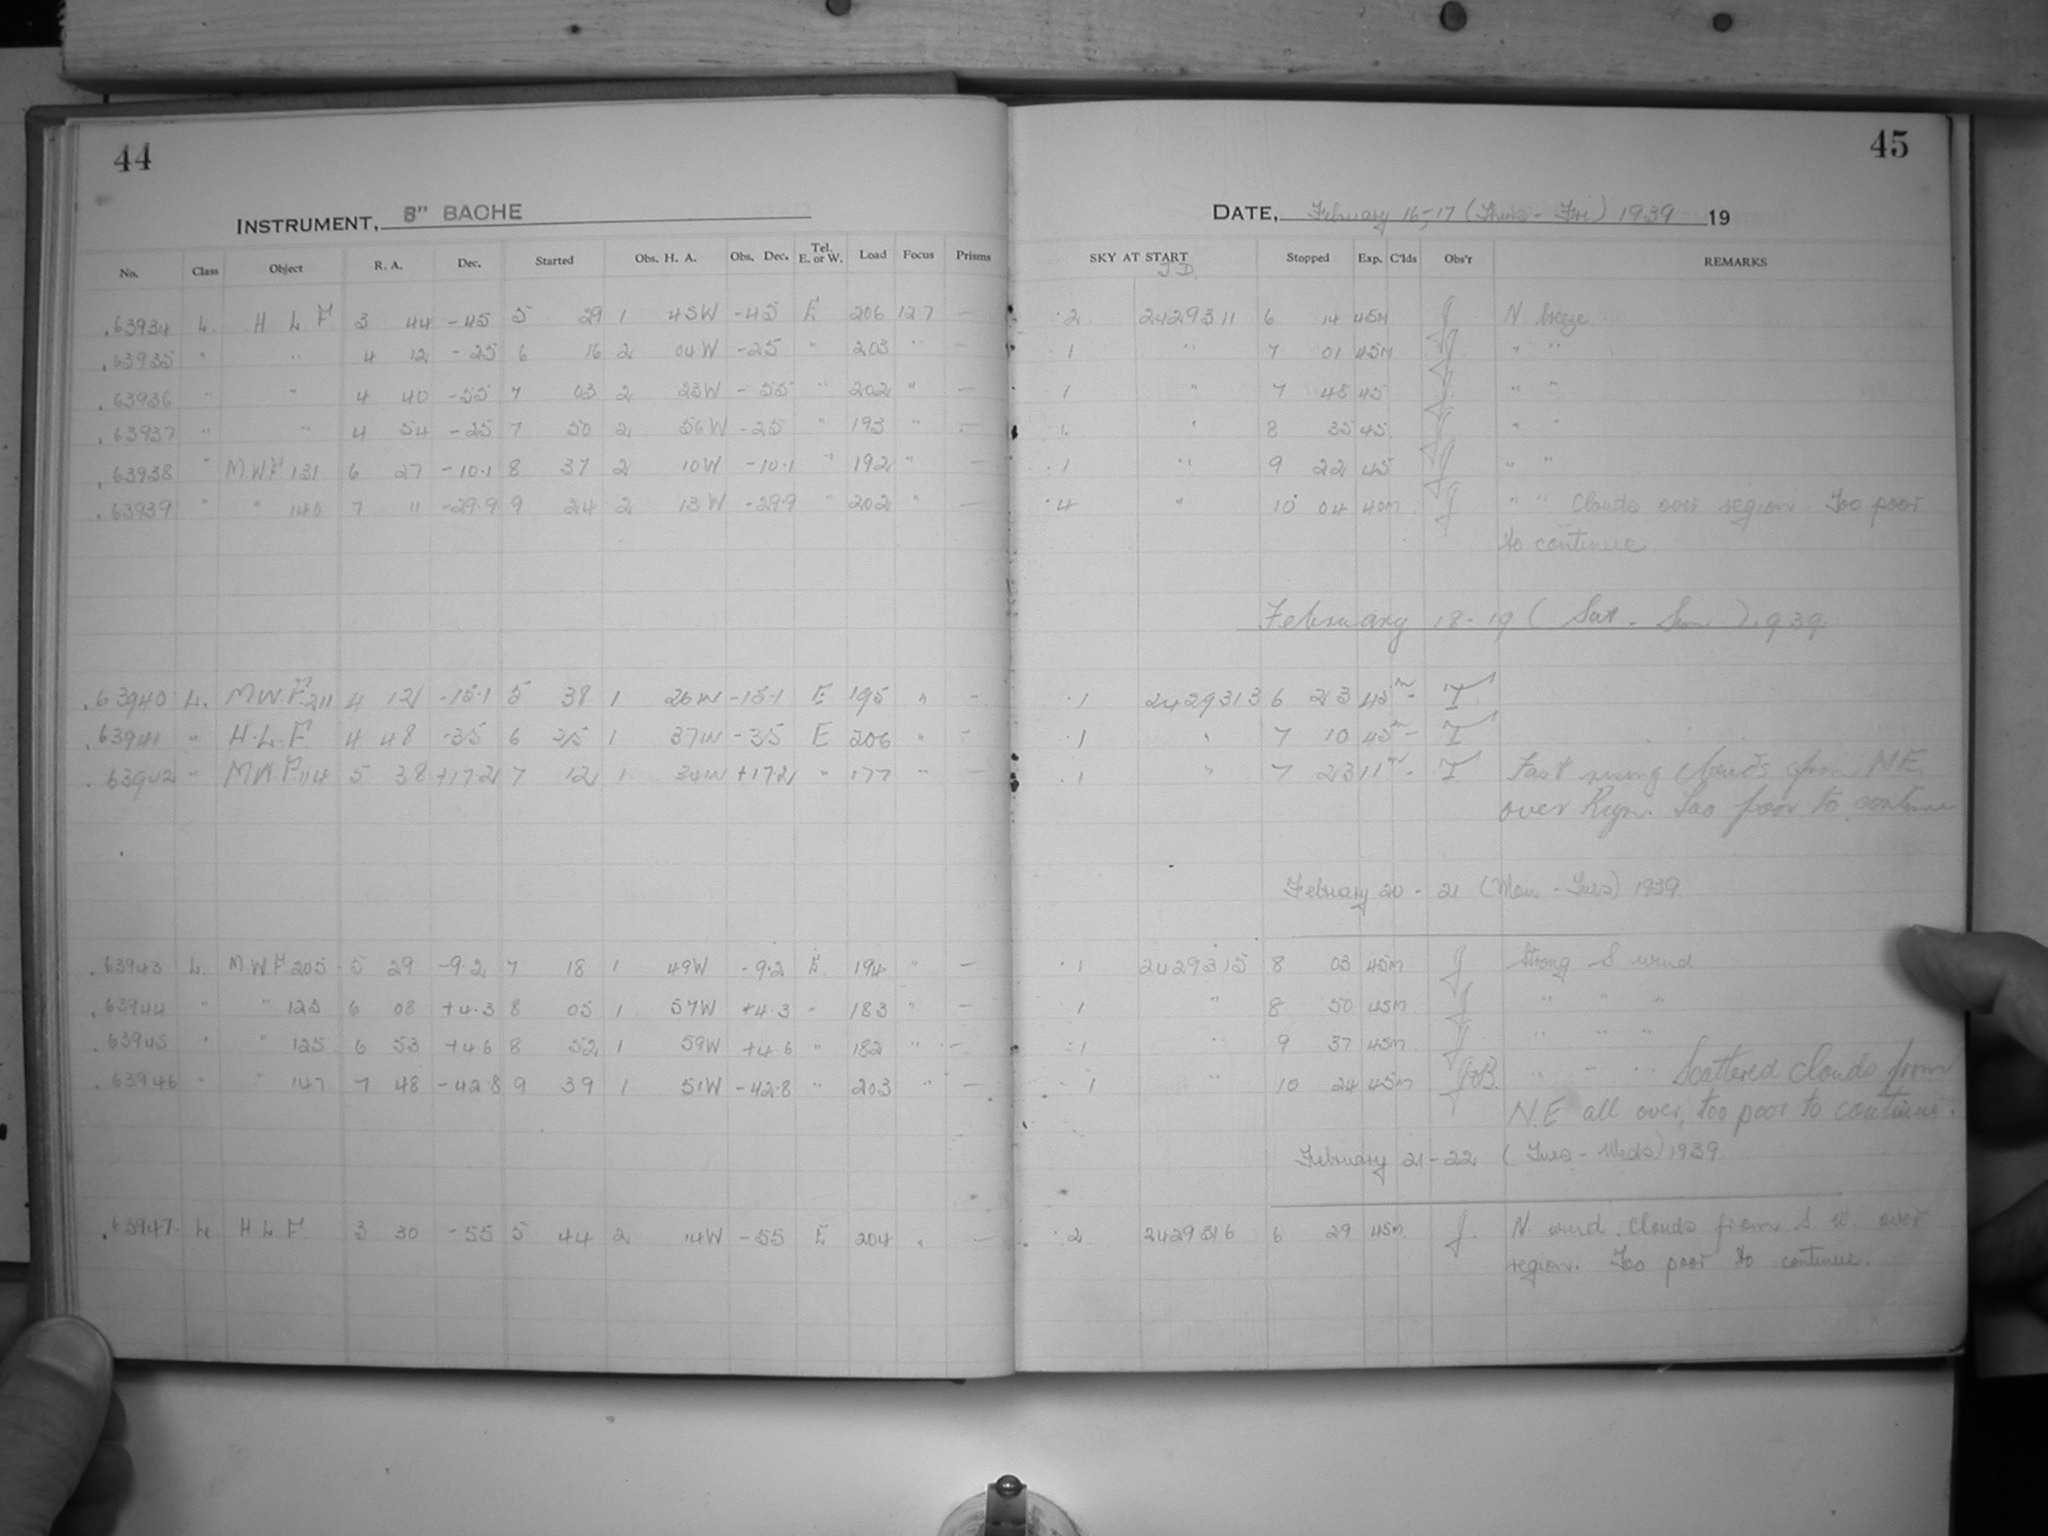 44
INSTRUMENT, 8" BACHE
No. Class Object R. A. Dec. Started Obs. H. A. Obs. Dec. Tel. E. or W. Load Focus Prisms
.63934 L. H L F 3 44 -45 5 29 1 45W -45 E 206 127 —
.63935 " " 4 12 -25 6 16 2 04W -25 " 203 " —
.63936 " " 4 40 -55 7 03 2 23W -55 " 202 " —
.63937 " " 4 54 -25 7 50 2 56W -25 " 193 " —
.63938 " M.W.F 131 6 27 -10.1 8 37 2 10W -10.1 " 192 " —
.63939 " " 140 7 11 -29.9 9 24 2 13W -29.9 " 202 " —
.63940 L. M.W.F. 211 4 12 -15.1 5 38 1 26W -15.1 E 195 " —
.63941 " H.L.F. 4 48 -35 6 25 1 37W -35 E 206 " —
.63942 " M.W.F. 114 5 38 +17.2 7 12 1 34W +17.2 " 177 " —
.63943 L. M.W.F. 205 5 29 -9.2 7 18 1 49W -9.2 E 194 " —
.63944 " " 123 6 08 +4.3 8 05 1 57W +4.3 " 183 " —
.63945 " " 125 6 53 +4.6 8 52 1 59W +4.6 " 182 " —
.63946 " " 147 7 48 -42.8 9 39 1 51W -42.8 " 203 " —
.63947 L H L F 3 30 -55 5 44 2 14W -55 E 204 " —
45
DATE, February 16-17 (Thurs - Fri) 1939 19
SKY AT START J.D. Stopped Exp. C'lds Obs'r REMARKS
2 2429311 6 14 45m J N breeze
1 " 7 01 45m J " "
1 " 7 48 45 J " "
1 " 8 35 45 J " "
1 " 9 22 45 J " "
4 " 10 04 40m J " " Clouds over region. Too poor
to continue
February 18-19 (Sat. - Sun) 1939
1 2429313 6 23 45m - T
1 " 7 10 45m - T
1 " 7 23 11m - T Fast rising clouds from N.E.
over Regn. Too poor to continue
February 20 - 21 (Mon - Tues) 1939.
1 2429315 8 03 45m J Strong S wind
1 " 8 50 45m J " " "
1 " 9 37 45m J " " "
1 " 10 24 45m J+B. " " " Scattered clouds from
N.E all over, too poor to continue.
February 21-22 (Tues - Weds) 1939.
2 2429316 6 29 45m J. N. wind. Clouds from S. W over
region. Too poor to continue.